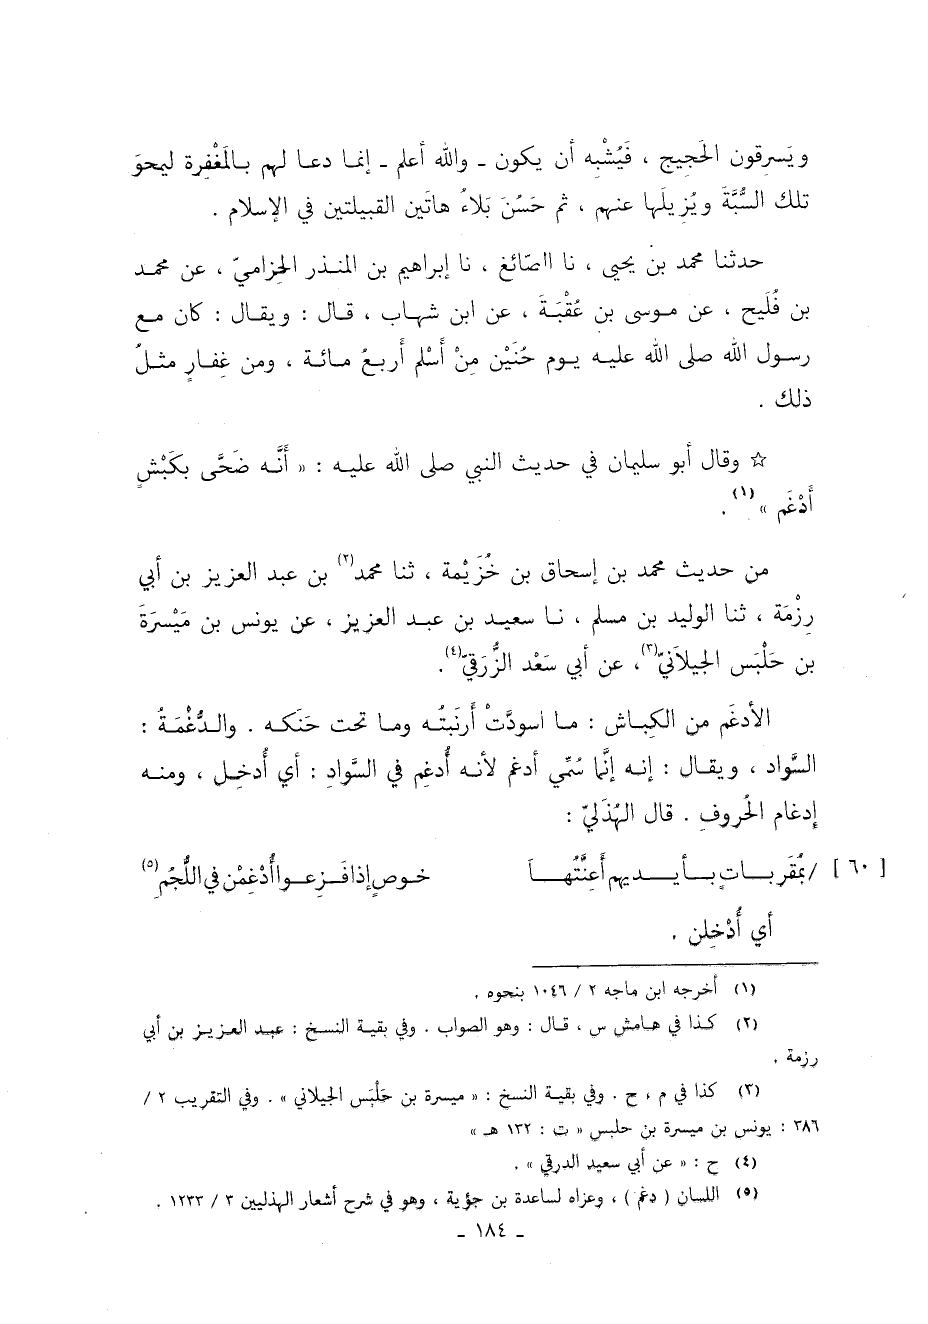 ويَسرِقون الحَجيج ، فَيُشْبِه أن يكون ـ والله أعلم ـ إنما دعا لهم بالمَغْفِرة ليمحوَ
تلك السُّبَّةَ ويُزيلَها عنهم ، ثم حَسُنَ بَلاءُ هاتَين القبيلتين في الإسلام .
حدثنا محمد بن يحيى ، نا االصّائغ ، نا إبراهيم بن المنذر الحِزاميّ ، عن محمد
بن فُلَيح ، عن موسى بن عُقْبَةَ ، عن ابن شهاب ، قال : ويقال : كان مع
رسول الله صلى الله عليه يوم حُنَيْن مِنْ أَسْلم أربعُ مائة ، ومن غِفارٍ مثلُ
ذلك .
☆ وقال أبو سليمان في حديث النبي صلى الله عليه : « أَنَّه ضَحَّى بكَبْشٍ
أَدْغَم »(١) .
من حديث محمد بن إسحاق بن خُزَيْمة ، ثنا محمد(٢) بن عبد العزيز بن أبي
رِزْمَة ، ثنا الوليد بن مسلم ، نا سعيد بن عبد العزيز ، عن يونس بن مَيْسَرَةَ
بن حَلْبَس الجيلانيّ(٣)، عن أبي سَعْد الزُّرَقيّ(٤).
الأدغَم من الكِباش : ما اسودَّتْ أرنَبتُه وما تحت حَنَكه . والدُّغْمَةُ :
السَّواد ، ويقال : إنه إنَّما سُمِّي أدغم لأنه أُدغِم في السَّوادِ : أي أُدخِل ، ومنه
إدغام الحُروفِ . قال الهُذَليّ :
[ ٦٠ ] / بمُقرَباتٍ بأيديهم أَعِنَّتُها خوصٍ إذا فَزِعوا أُدْغِمْن في اللُّجُمِ(٥)
أي أُدْخلِن .
(١) أخرجه ابن ماجه ٢ / ١٠٤٦ بنحوه .
(٢) كذا في هامش س ، قال : وهو الصواب . وفي بقية النسخ : عبد العزيز بن أبي
رزمة .
(٣) كذا في م ، ح . وفي بقية النسخ : « ميسرة بن حَلْبَس الجيلاني » . وفي التقريب ٢ /
٣٨٦ : يونس بن ميسرة بن حلبس « ت : ١٣٢ هـ »
(٤) ح : « عن أبي سعيد الدرقي » .
(٥) اللسان ( دغم ) ، وعزاه لساعدة بن جؤية ، وهو في شرح أشعار الهذليين ٣ / ١٢٣٣ .
ـ ١٨٤ ـ